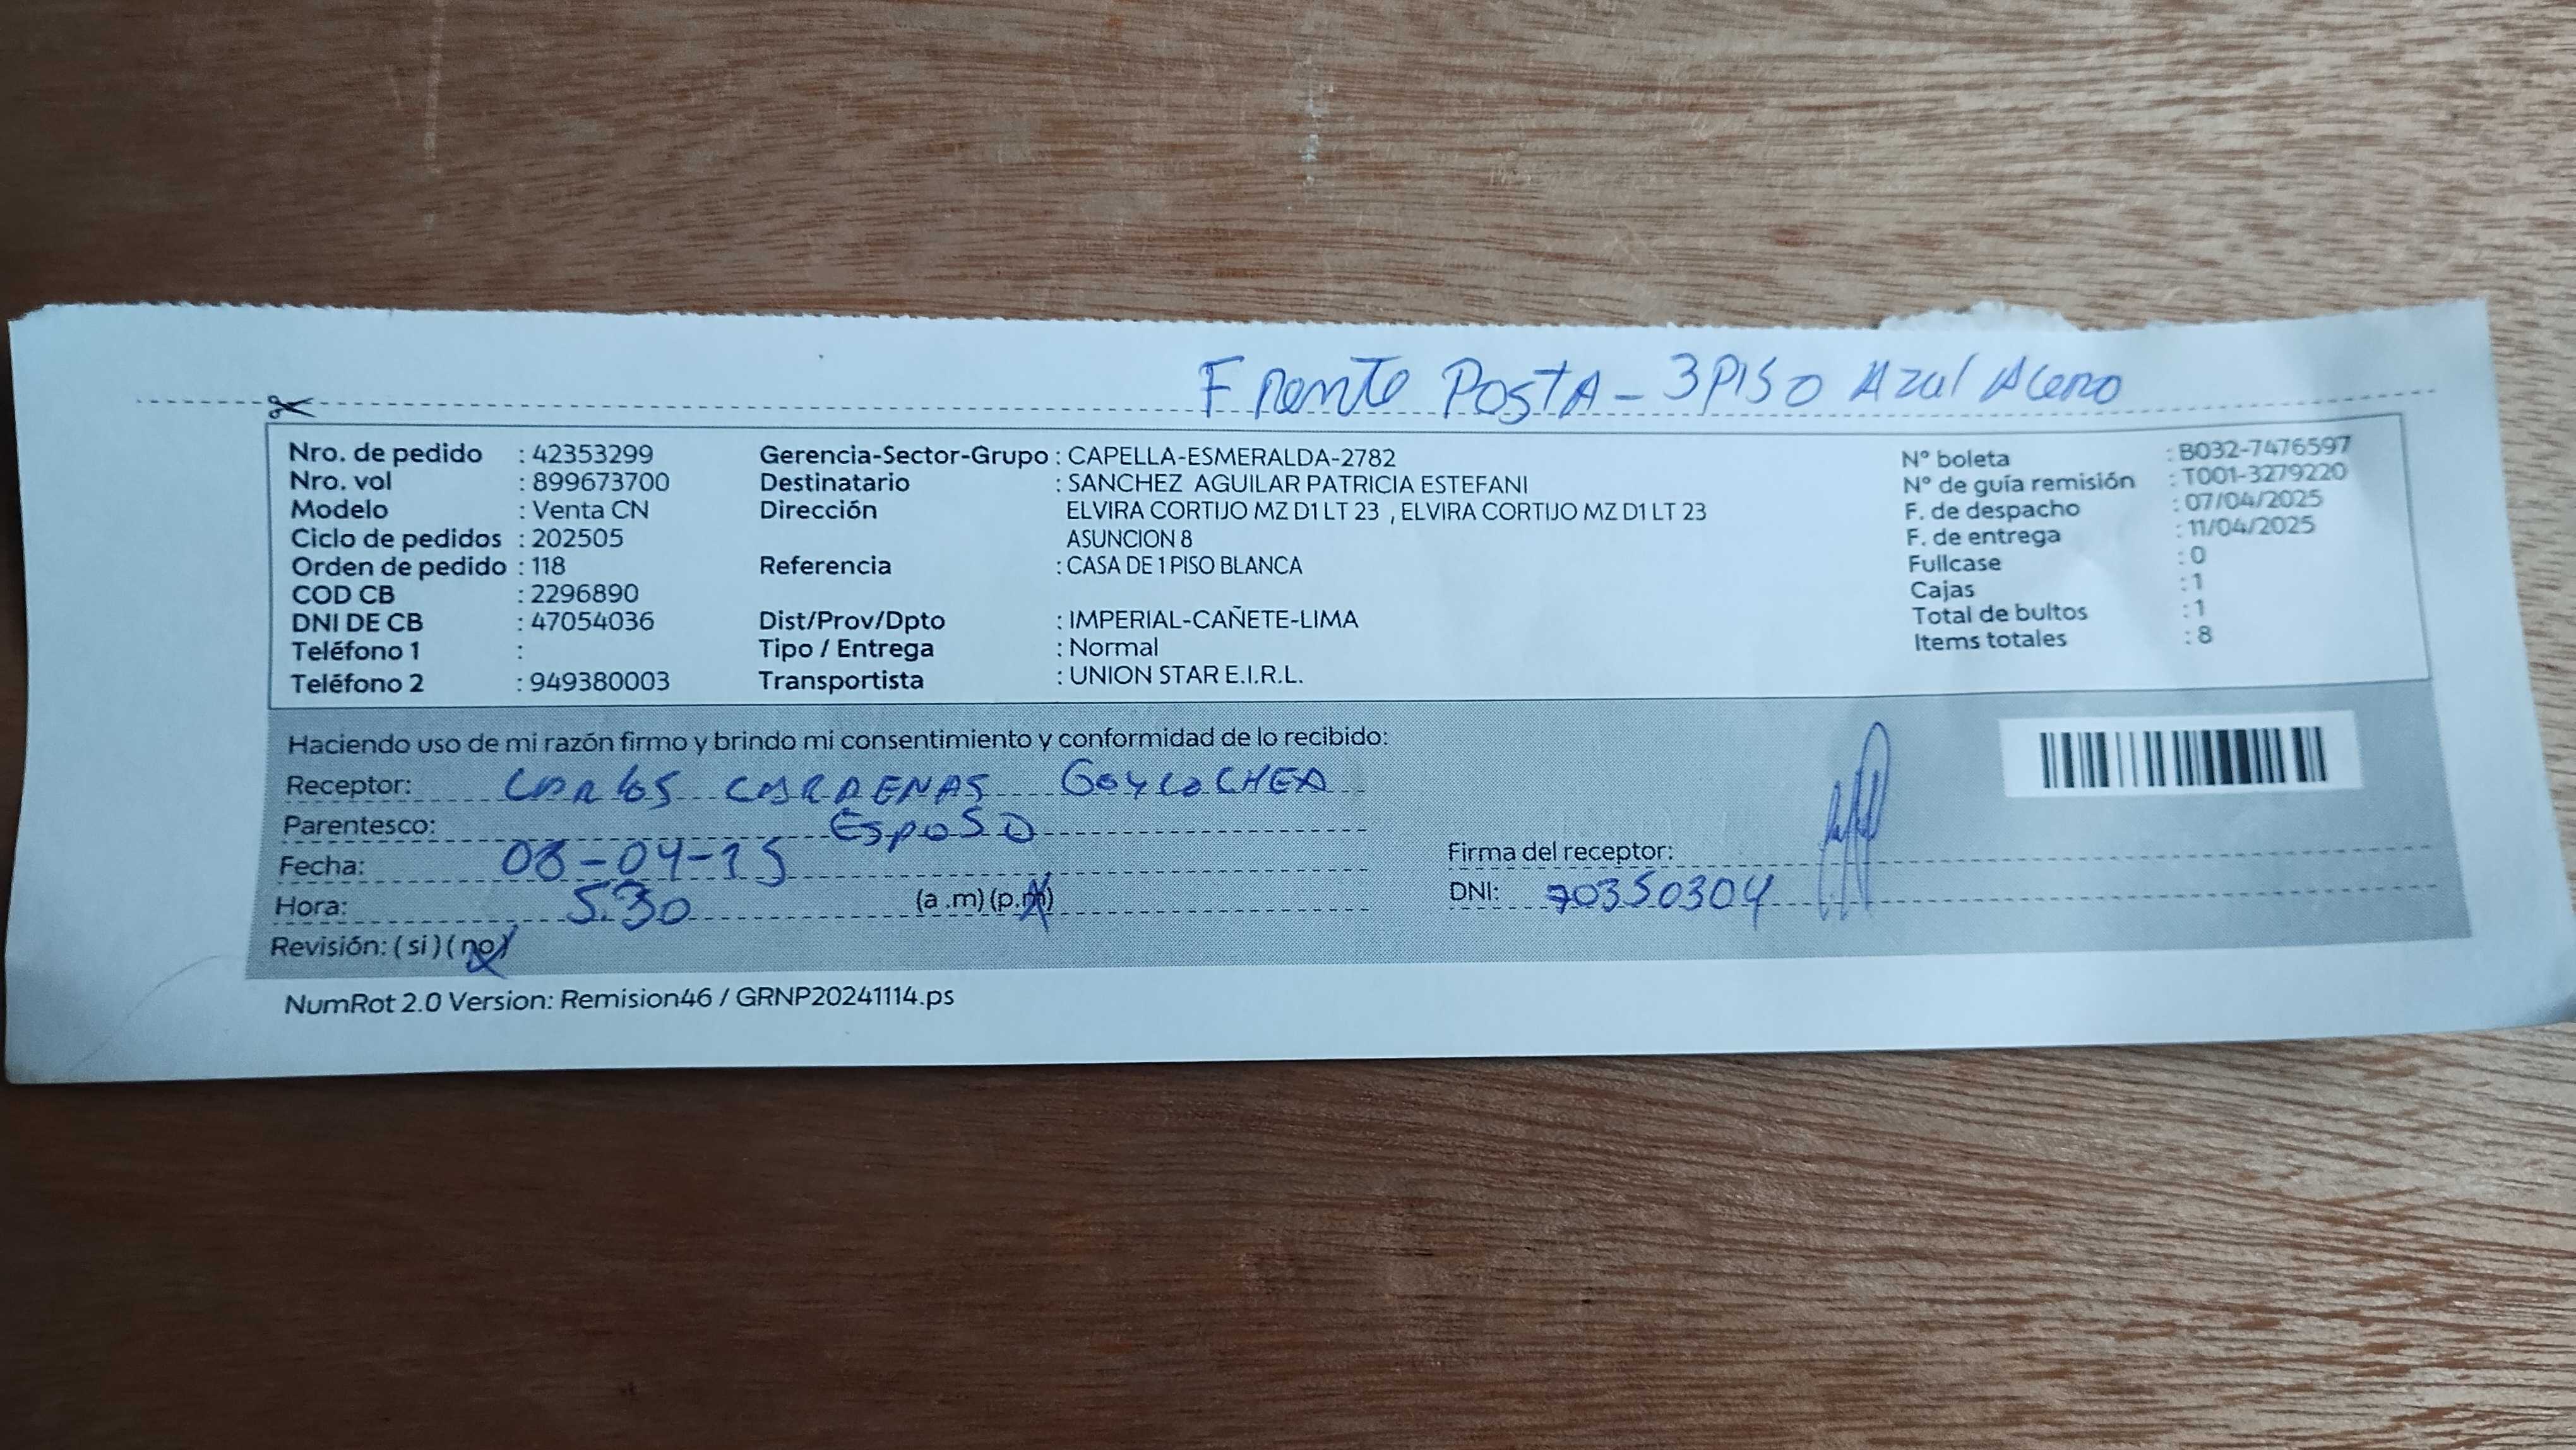 Frente Posta - 3 Piso Azul Acero
Nro. de pedido : 42353299
Nro. vol : 899673700
Modelo : Venta CN
Ciclo de pedidos : 202505
Orden de pedido : 118
COD CB : 2296890
DNI DE CB : 47054036
Teléfono 1 :
Teléfono 2 : 949380003
Gerencia-Sector-Grupo : CAPELLA-ESMERALDA-2782
Destinatario : SANCHEZ AGUILAR PATRICIA ESTEFANI
Dirección ELVIRA CORTIJO MZ D1 LT 23 , ELVIRA CORTIJO MZ D1 LT 23
ASUNCION 8
Referencia : CASA DE 1 PISO BLANCA
Dist/Prov/Dpto : IMPERIAL-CAÑETE-LIMA
Tipo / Entrega : Normal
Transportista : UNION STAR E.I.R.L.
N° boleta : B032-7476597
N° de guía remisión : T001-3279220
F. de despacho : 07/04/2025
F. de entrega : 11/04/2025
Fullcase : 0
Cajas : 1
Total de bultos : 1
Items totales : 8
Haciendo uso de mi razón firmo y brindo mi consentimiento y conformidad de lo recibido:
Receptor: Carlos Cardenas Goycochea
Parentesco: Esposo
Fecha: 08-04-25
Hora: 5:30 (a .m) (p.m)
Revisión: ( si ) ( no )
Firma del receptor:
DNI: 70350304
NumRot 2.0 Version: Remision46 / GRNP20241114.ps